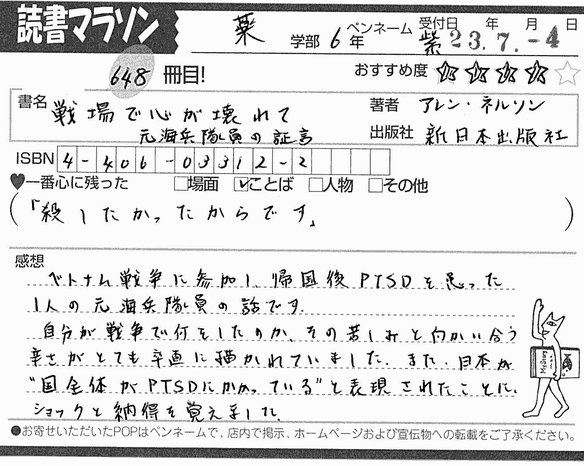 読書マラソン
薬 学部 6年 ペンネーム 紫 受付日 年 月 日 23.7.-4
648 冊目! おすすめ度 ☆☆☆☆☆
書名 戦場で心が壊れて 著者 アレン・ネルソン
元海兵隊員の証言 出版社 新日本出版社
ISBN 4-406-03312-2
♥一番心に残った □場面 ☑ことば □人物 □その他
(「殺したかったからです」)
感想
ベトナム戦争に参加し、帰国後PTSDを患った
1人の元海兵隊員の話です。
自分が戦争で何をしたのか、その苦しみと向かい合う
辛さがとても率直に描かれていました。また、日本が
"国全体がPTSDにかかっている"と表現されたことに、
ショックと納得を覚えました。
●お寄せいただいたPOPはペンネームで、店内で掲示、ホームページおよび宣伝物への転載をご了承ください。